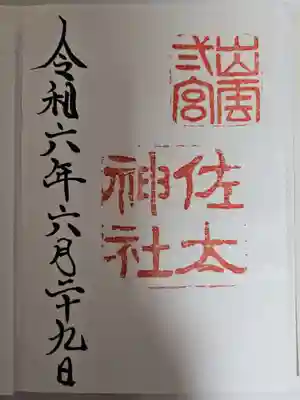 出雲
弐宮
佐太
神社
令和六年六月二十九日